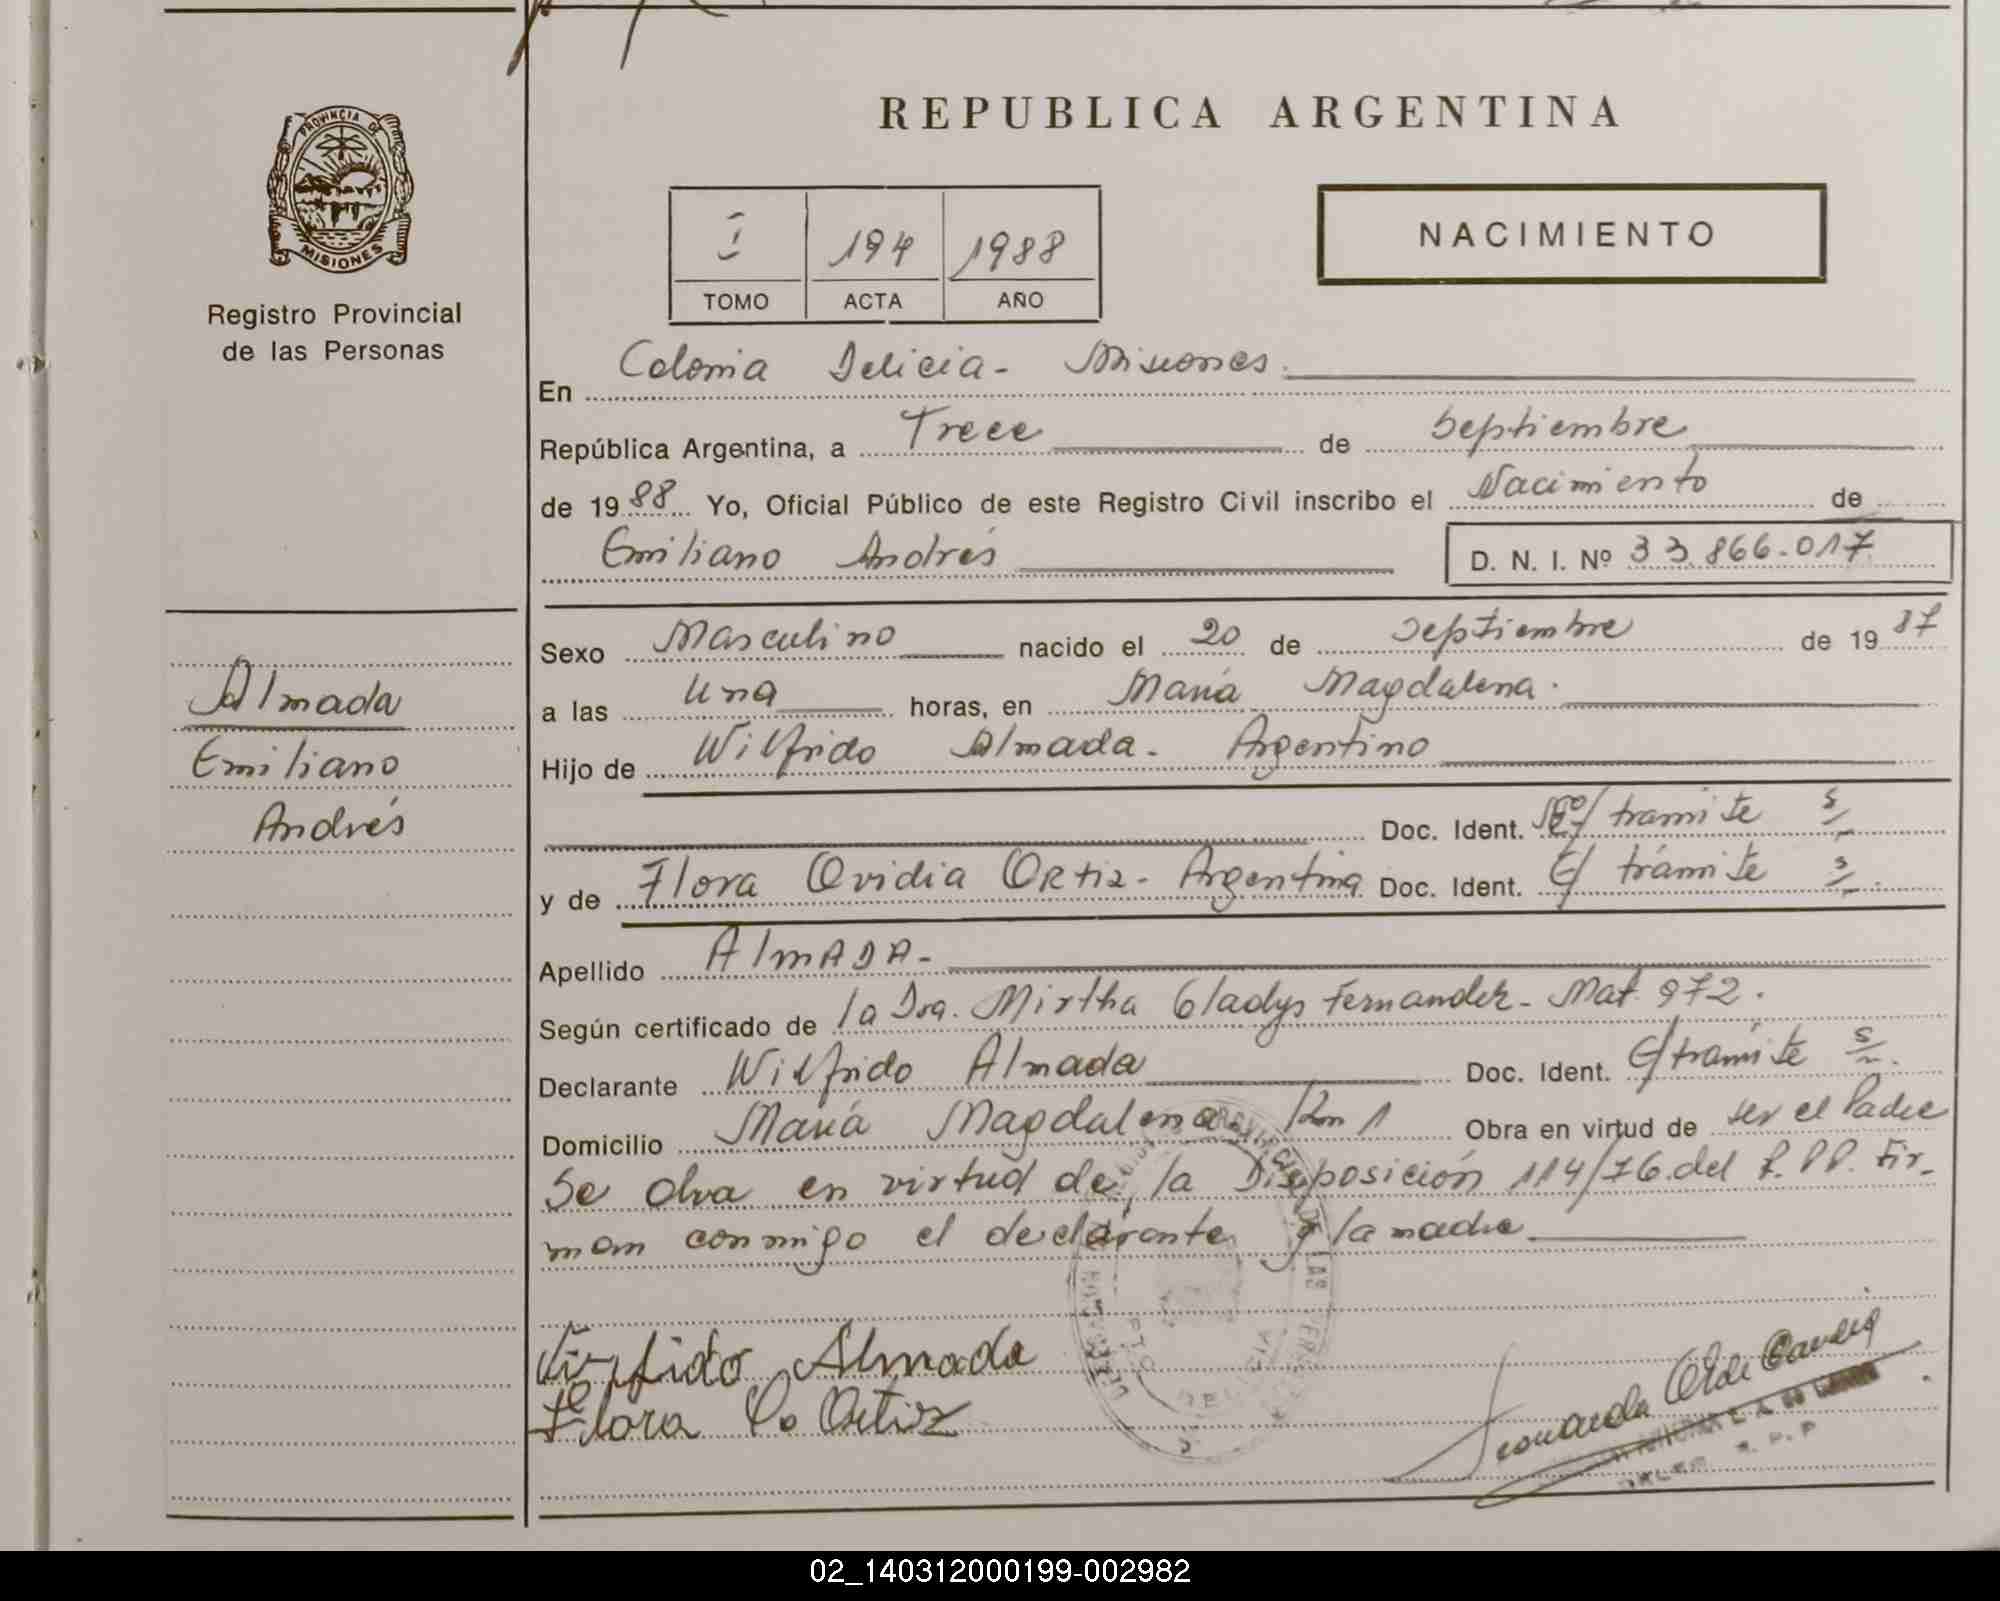 PROVINCIA DE
MISIONES
Registro Provincial
de las Personas
Almada
Emiliano
Andrés
REPUBLICA ARGENTINA
I 194 1988
TOMO ACTA AÑO
NACIMIENTO
En Colonia Delicia - Misiones.
República Argentina, a Trece de Septiembre
de 1988 Yo, Oficial Público de este Registro Civil inscribo el Nacimiento de
Emiliano Andrés D. N. I. Nº 33.866.017
Sexo Masculino nacido el 20 de Septiembre de 1987
a las Una horas, en María Magdalena.
Hijo de Wilfrido Almada - Argentino
Doc. Ident. E/ tramite s/
y de Flora Ovidia Ortiz - Argentina Doc. Ident. E/ trámite s/.
Apellido AlmADA -
Según certificado de la Dra. Mirtha Gladys Fernandez - Mat. 972.
Declarante Wilfrido Almada Doc. Ident. E/ trámite s/n.
Domicilio María Magdalena Km 1 Obra en virtud de ser el Padre
Se obra en virtud de la Disposición 114/76 del R.P.P. Fir-
man conmigo el declarante y la madre
Wilfrido Almada
Flora O. Ortiz
DELICIA
R. P. P
02_140312000199-002982